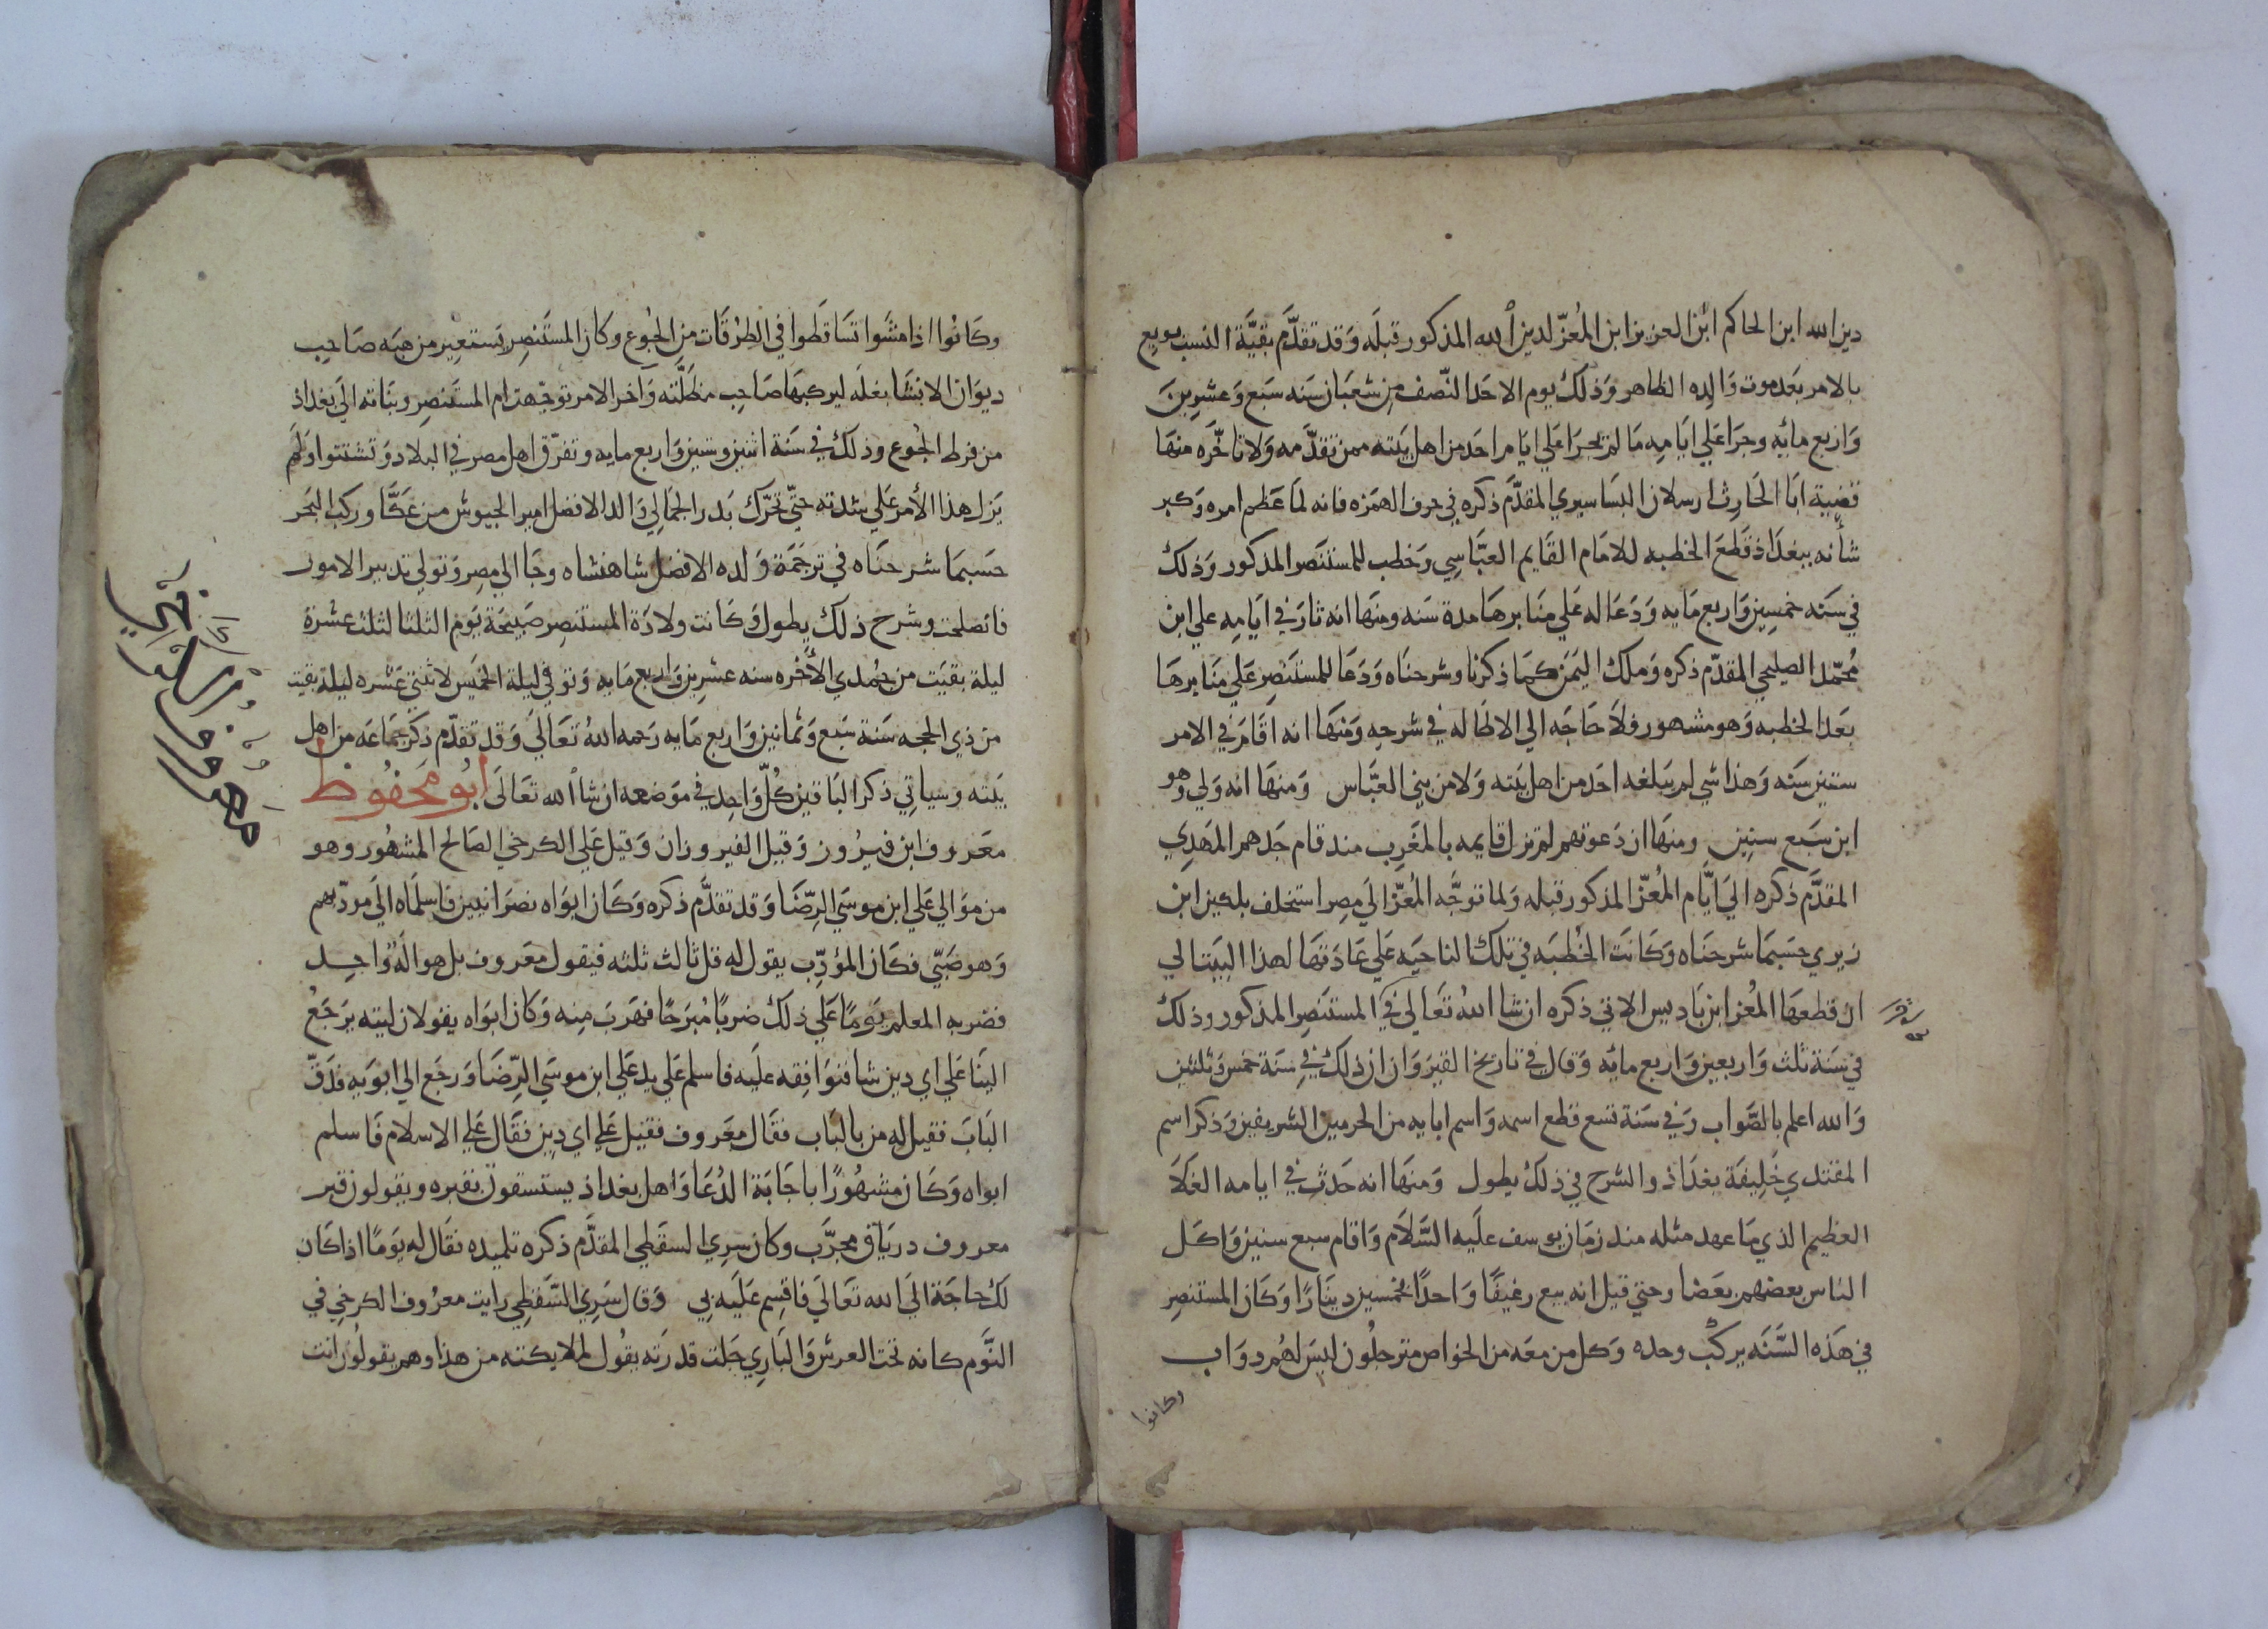 دين الله ابن الحاكم ابن العزيز ابن المُعزّ لدين الله المذكور قبلَه وَقد تقدَّم بقيَّة النسب بويع
بالامر بَعد موت وَالده الظاهر وَذلك يوم الاحَد النّصف مِن شعبَان سَنه سَبع وَعشرِينَ
وَاربع مائه وجرَا عَلي ايامِه مَا لم يجرَا عَلي ايام احَد من اهل بَيته ممن تقدَّمه وَلا تاخَّره منهَا
قضية ابَا الحَارِث ارسلان البَسَاسيري المقدَّم ذكره في حرف الهمَزه فانه لمَا عَظم امره وَكبر
شأنه ببغدَاذ قَطعَ الخطبه للامَام القَايم العبَّاسِي وَخطب للمستنَصر المذكور وَذلك
في سَنه خمسِين وَاربع مَايه وَدَعَا له عَلي مَنَابرهَا مدة سَنه ومنهَا انه ثارَ في ايَامِه علي ابن
مُحَمّد الصليحي المقدّم ذكره وَملك اليَمن كمَا ذكرنا وشرحنَاه وَدَعَا للمستَنصِر عَلي مَنَابرهَا
بعَد الخطبه وَهو مشهور فلا حَاجَه الي الاطَاله في شرحِه وَمنهَا انه اقَامَ في الامر
ستين سَنه وَهذا شي لم يَبلغه احَد من اهل بَيته وَلا من بني العبَّاس وَمنهَا انه وَلي وهو
ابن سَبع سنين ومنهَا ان دَعوتهم لم تزل قايمه بالمغَرِب منذ قام جَدهم المَهدِي
المقدَّم ذكره الي ايَّام المُعزّ المذكور قبله وَلما توجَّه المُعزّ الَي مصِر استخلف بلكين ابن
زيري حسَبمَا شرحنَاه وَكَانَت الخُطبَه في تلك الناحيَه عَلي عَادَتهَا لهذا البَيت الي
ان قطعهَا المُعز ابن بَاديس الاتي ذكره ان شا اللهُ تعَالي في المستَنصِر المذكور وذلك
في سَنة ثلث وَاربعين وَاربع مائَه وَقال في تاريخ القيرَوَان ان ذلك في سَنة خمس وَثلثين
وَالله اعلم بالصَّواب وَفي سَنة تسع قطع اسمه وَاسم ابايه من الحرمين الشريفين وَذكر اسم
المقتدي خَلِيفَة بغدَاذ والشرح في ذلك يطول وَمنهَا انه حَدَث في ايامه الغَلاَ
العظيم الذي مَا عهد مثله منذ زمَان يوسف علَيه السَّلاَم وَاقام سبع سنين وَاكَل
الناس بعضهم بعَضا وحتي قيل انه بيع رغيفًا وَاحدًا بخمسين دينَارًا وَكان المستنصِر
في هَذه السَّنَه يركبْ وحده وَكل من معَه من الخواص مترجلُون ليسَ لهُم دوَاب
وكانوا
وكَانُوا اذا مشَوا تسَاقَطوا في الطرُقَات مِن الجُوع وكان المستَنصِر يَستعِير من هبَه صَاحِب
ديوَان الانشَا بغلَه ليركبهَا صَاحِب مظَلَّته وَاخر الامر توَجّهت ام المستَنصِر وبنَاته الي بَغداذ
من فرط الجُوع وذلك في سَنَة اثنين وستين وَاربع مايه وتفرّق اهل مصر في البلاد وَتشتتوا وَلَم
يَزل هذا الأمر عَلي شدته حتّي تحَرّك بَدر الجَمالي وَالد الافضل امير الجيوش من عَكَّا وركب البَحر
حسَبمَا شرحنَاه في ترجَمَة وَلده الافضل شاهنشاه وجَا الي مصِر وَتولي تدبير الامور
فانصلحت وشرح ذلك يطول وَكَانت ولادَة المستَنصِر صَبيحَة يَوم الثلثا لثلث عشرَة
ليلة بقيَت من جمُدي الأخره سنه عشرِين وَاربع مَايه وَتوفي ليلة الخميَس لاثنتي عَشره ليلة بقيت
من ذي الحجه سَنة سَبع وَثمانين وَاربع مَايه رَحمه اللهُ تَعَالَي وَقد تقدّم ذكر جمَاعَه من اهل
بَيته وسَياتي ذكر البَاقين كُلّ وَاحِد في موَضعه ان شا الله تعَالَي ابُو محَفُوظ
معَروف ابن فيرُوز وَقيل الفيروزان وَقيل عَلي الكرخي الصَالح المشهُور وهو
من مَوَالي عَلي ابن موسَي الرِّضَا وَقد تقدَّم ذكره وَكَان ابوَاه نصرَانيين فاسلمَاه الَي مودّبهم
وَهو صَبّي فكَان المؤدِّب يقول له قل ثالث ثلثه فيقول معَروف بل هو الَهٌ وَاحِد
فضربه المعلم يَومًا عَلي ذلك ضربًا مُبَرحًا فهَربَ مِنه وَكان ابوَاه يقولان ليته يرَجَعُ
الينَا عَلي اي دين شا فنوَافِقه علَيه فاسلم عَلي يد عَلي ابن موسَي الرِّضَا وَرجَع الي ابوَيه فدَقّ
البَابَ فقيل له من بالبَاب فقَال معَروف فقيل عَلي اي دِين فقَال عَلي الاسلام فاَسلم
ابواه وَكَان مشَهُورًا باجَابَة الدُعَا وَاهل بغداذ يستسقون بقبره ويقولون قبر
معروف درياق مجرَّب وكان سرِي السقَطي المقدَّم ذكره تلميذه فقَال له يوَمًا اذا كَان
لك حاجَة الَي الله تعَالَي فاقسِم عَلَيه بي وَقال سَرِي السَّقَطِي رايت معرُوف الكرخِي في
النَّوم كانه تحَت العرش وَالبَارِي جَلت قدرَته يقُول لملايكته من هذا وهم يقولُون انت
معروف الكرخي